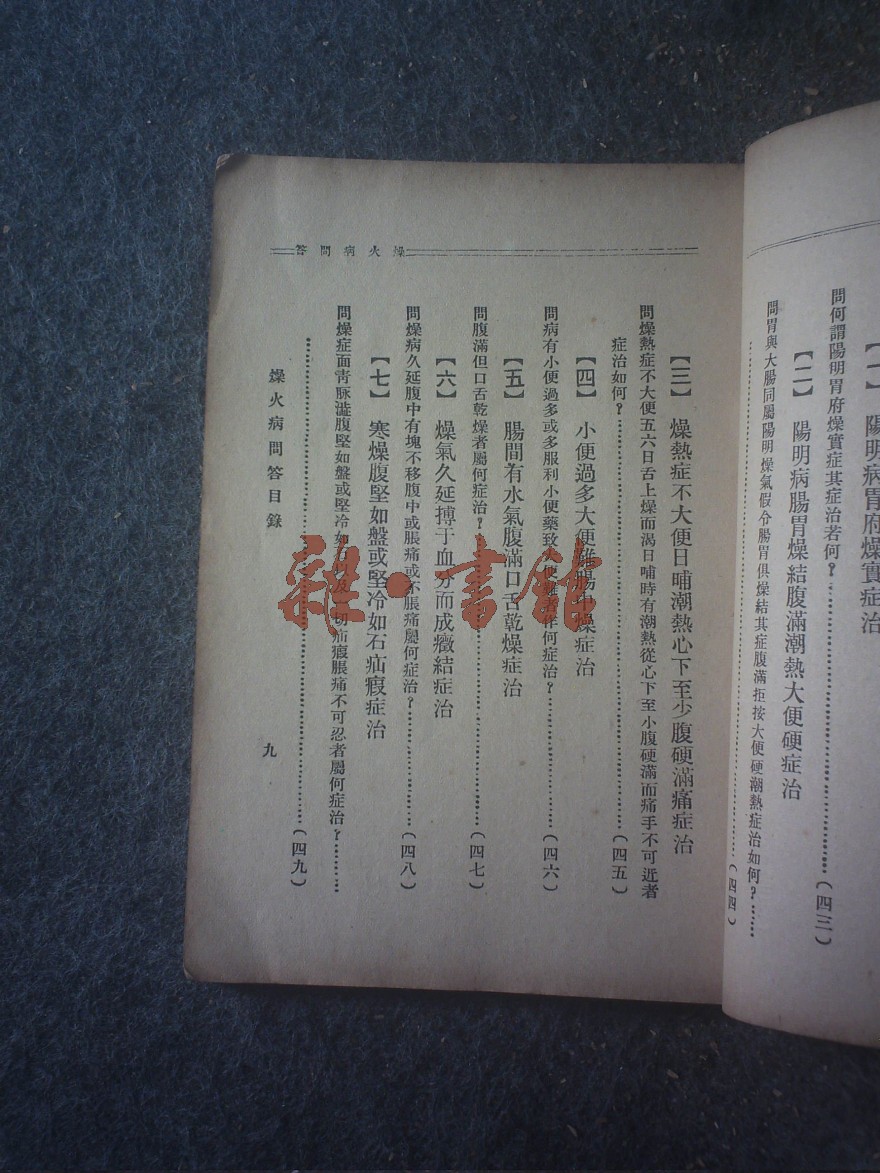 【一】 陽明病胃府燥實症治
問何謂陽明胃府燥實症其症治若何？(四三)
【二】 陽明病腸胃燥結腹滿潮熱大便硬症治
問胃與大腸同屬陽明燥氣假令腸胃俱燥結其症腹滿拒按大便硬潮熱症治如何？
(四四)
燥火病問答
【三】 燥熱症不大便日哺潮熱心下至少腹硬滿痛症治
問燥熱症不大便五六日舌上燥而渴日哺時有潮熱從心下至小腹硬滿而痛手不可近者
症治如何？(四五)
【四】 小便過多大便難腸中燥症治
問病有小便過多或多服利小便藥致大便難者作何症治？(四六)
【五】 腸間有水氣腹滿口舌乾燥症治
問腹滿但口舌乾燥者屬何症治？(四七)
【六】 燥氣久延搏于血分而成癥結症治
問燥病久延腹中有塊不移腹中或脹痛或不脹痛屬何症治？(四八)
【七】 寒燥腹堅如盤或堅冷如石疝瘕症治
問燥症面青脉澁腹堅如盤或堅冷如石以及一切疝瘕脹痛不可忍者屬何症治？
(四九)
燥火病問答目錄
九
雜·書館